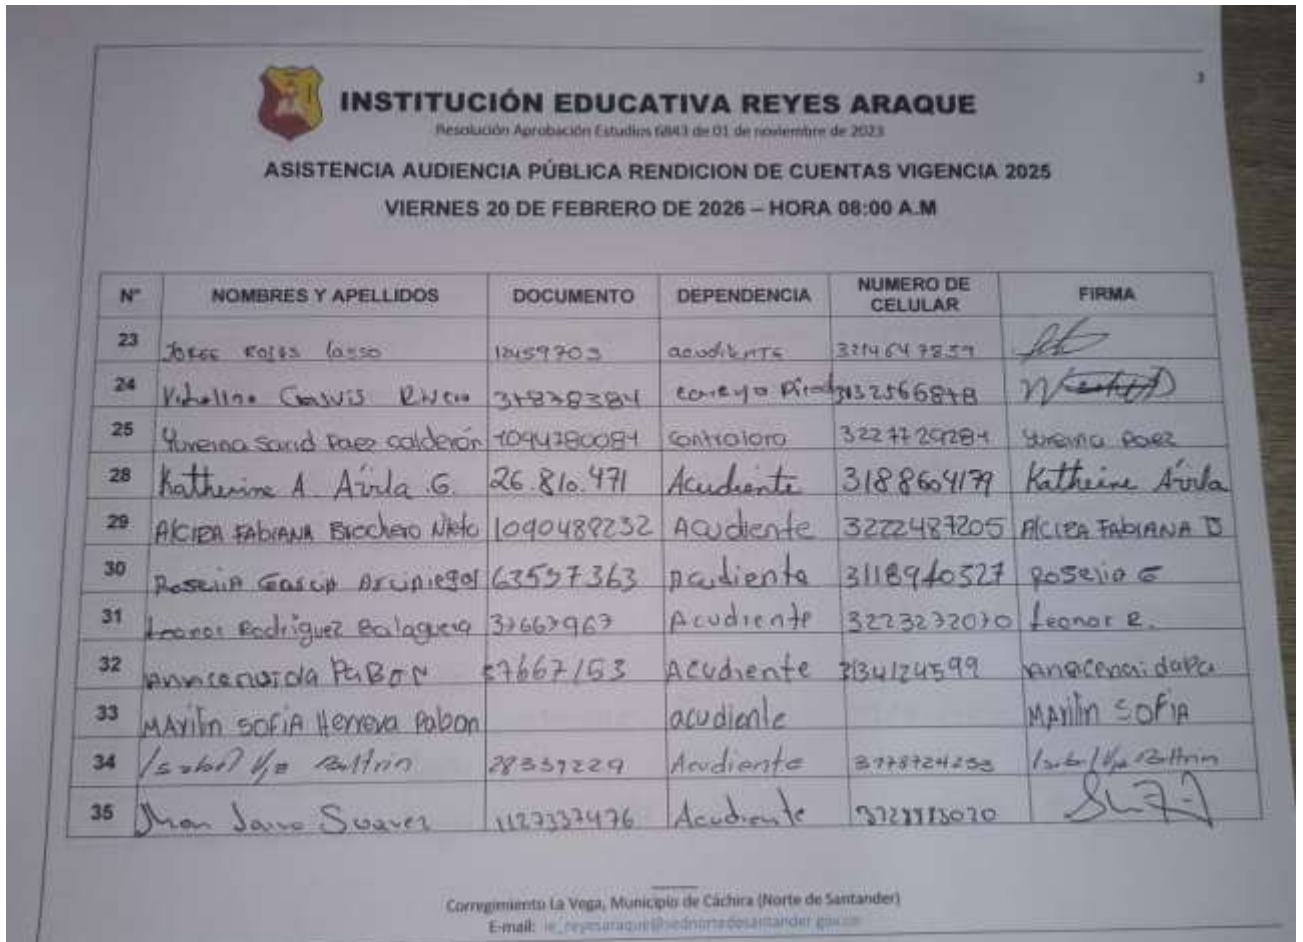 3
INSTITUCIÓN EDUCATIVA REYES ARAQUE
Resolución Aprobación Estudios 6843 de 01 de noviembre de 2023
ASISTENCIA AUDIENCIA PÚBLICA RENDICION DE CUENTAS VIGENCIA 2025
VIERNES 20 DE FEBRERO DE 2026 – HORA 08:00 A.M
N° NOMBRES Y APELLIDOS DOCUMENTO DEPENDENCIA NUMERO DE CELULAR FIRMA
23 Jorge Rojas Lasso acudiente
24
25 Yureina Sarid Paez Calderón Contralora Yureina Paez
28 Katherine A. Avila G. 26.810.471 Acudiente 3188604179 Katherine Avila
29 Alcira FABIANA Brochero Nieto 1090489232 Acudiente 3222487205 Alcira FABIANA B
30 Roselia Garcia Arciniegas 63597363 Acudiente Roselia G
31 Leonor Rodriguez Balaguera 37667967 Acudiente 3223272070 Leonor R.
32 PABON Acudiente 3134124599
33 MAYilin SOFIA Herrera Pabon acudiente MAYilin SOFIA
34 28337229 Acudiente
35 Jhon Jairo Suarez 1127337476 Acudiente
Corregimiento La Vega, Municipio de Cáchira (Norte de Santander)
E-mail: ie_reyesaraque@sednortedesantander.gov.co